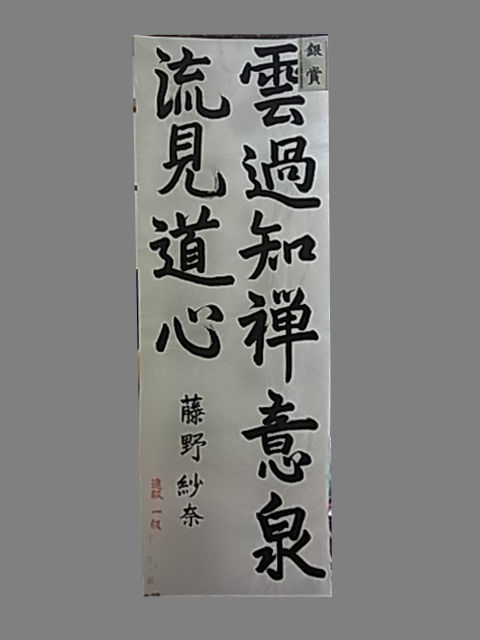 銀賞
雲過知禅意泉
流見道心
藤野紗奈
進級 一級